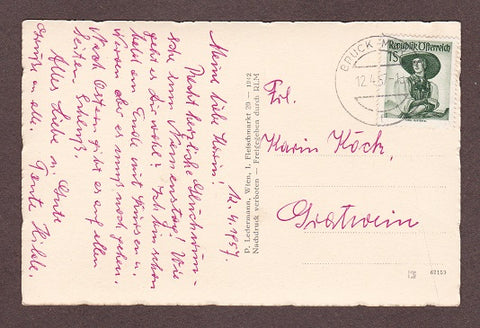 12.4.1957
Meine liebe Karin!
Recht herzliche Glückwün-
sche zum Namenstag! Wie
geht es Dir wohl? Ich bin schon
bald am Ende mit
Nerven aber es muß noch gehen.
Nach Ostern gibt es auf allen
Seiten
Alles Liebe u. Gute
Grüße an alle. Tante Hilde.
P. Ledermann, Wien, I. Fleischmarkt 20 — 1942
Nachdruck verboten — Freigegeben durch RLM
BRUCK
12.4.57
Republik Österreich
1S
Frl.
Karin Köck,
Gratwein
13
62153